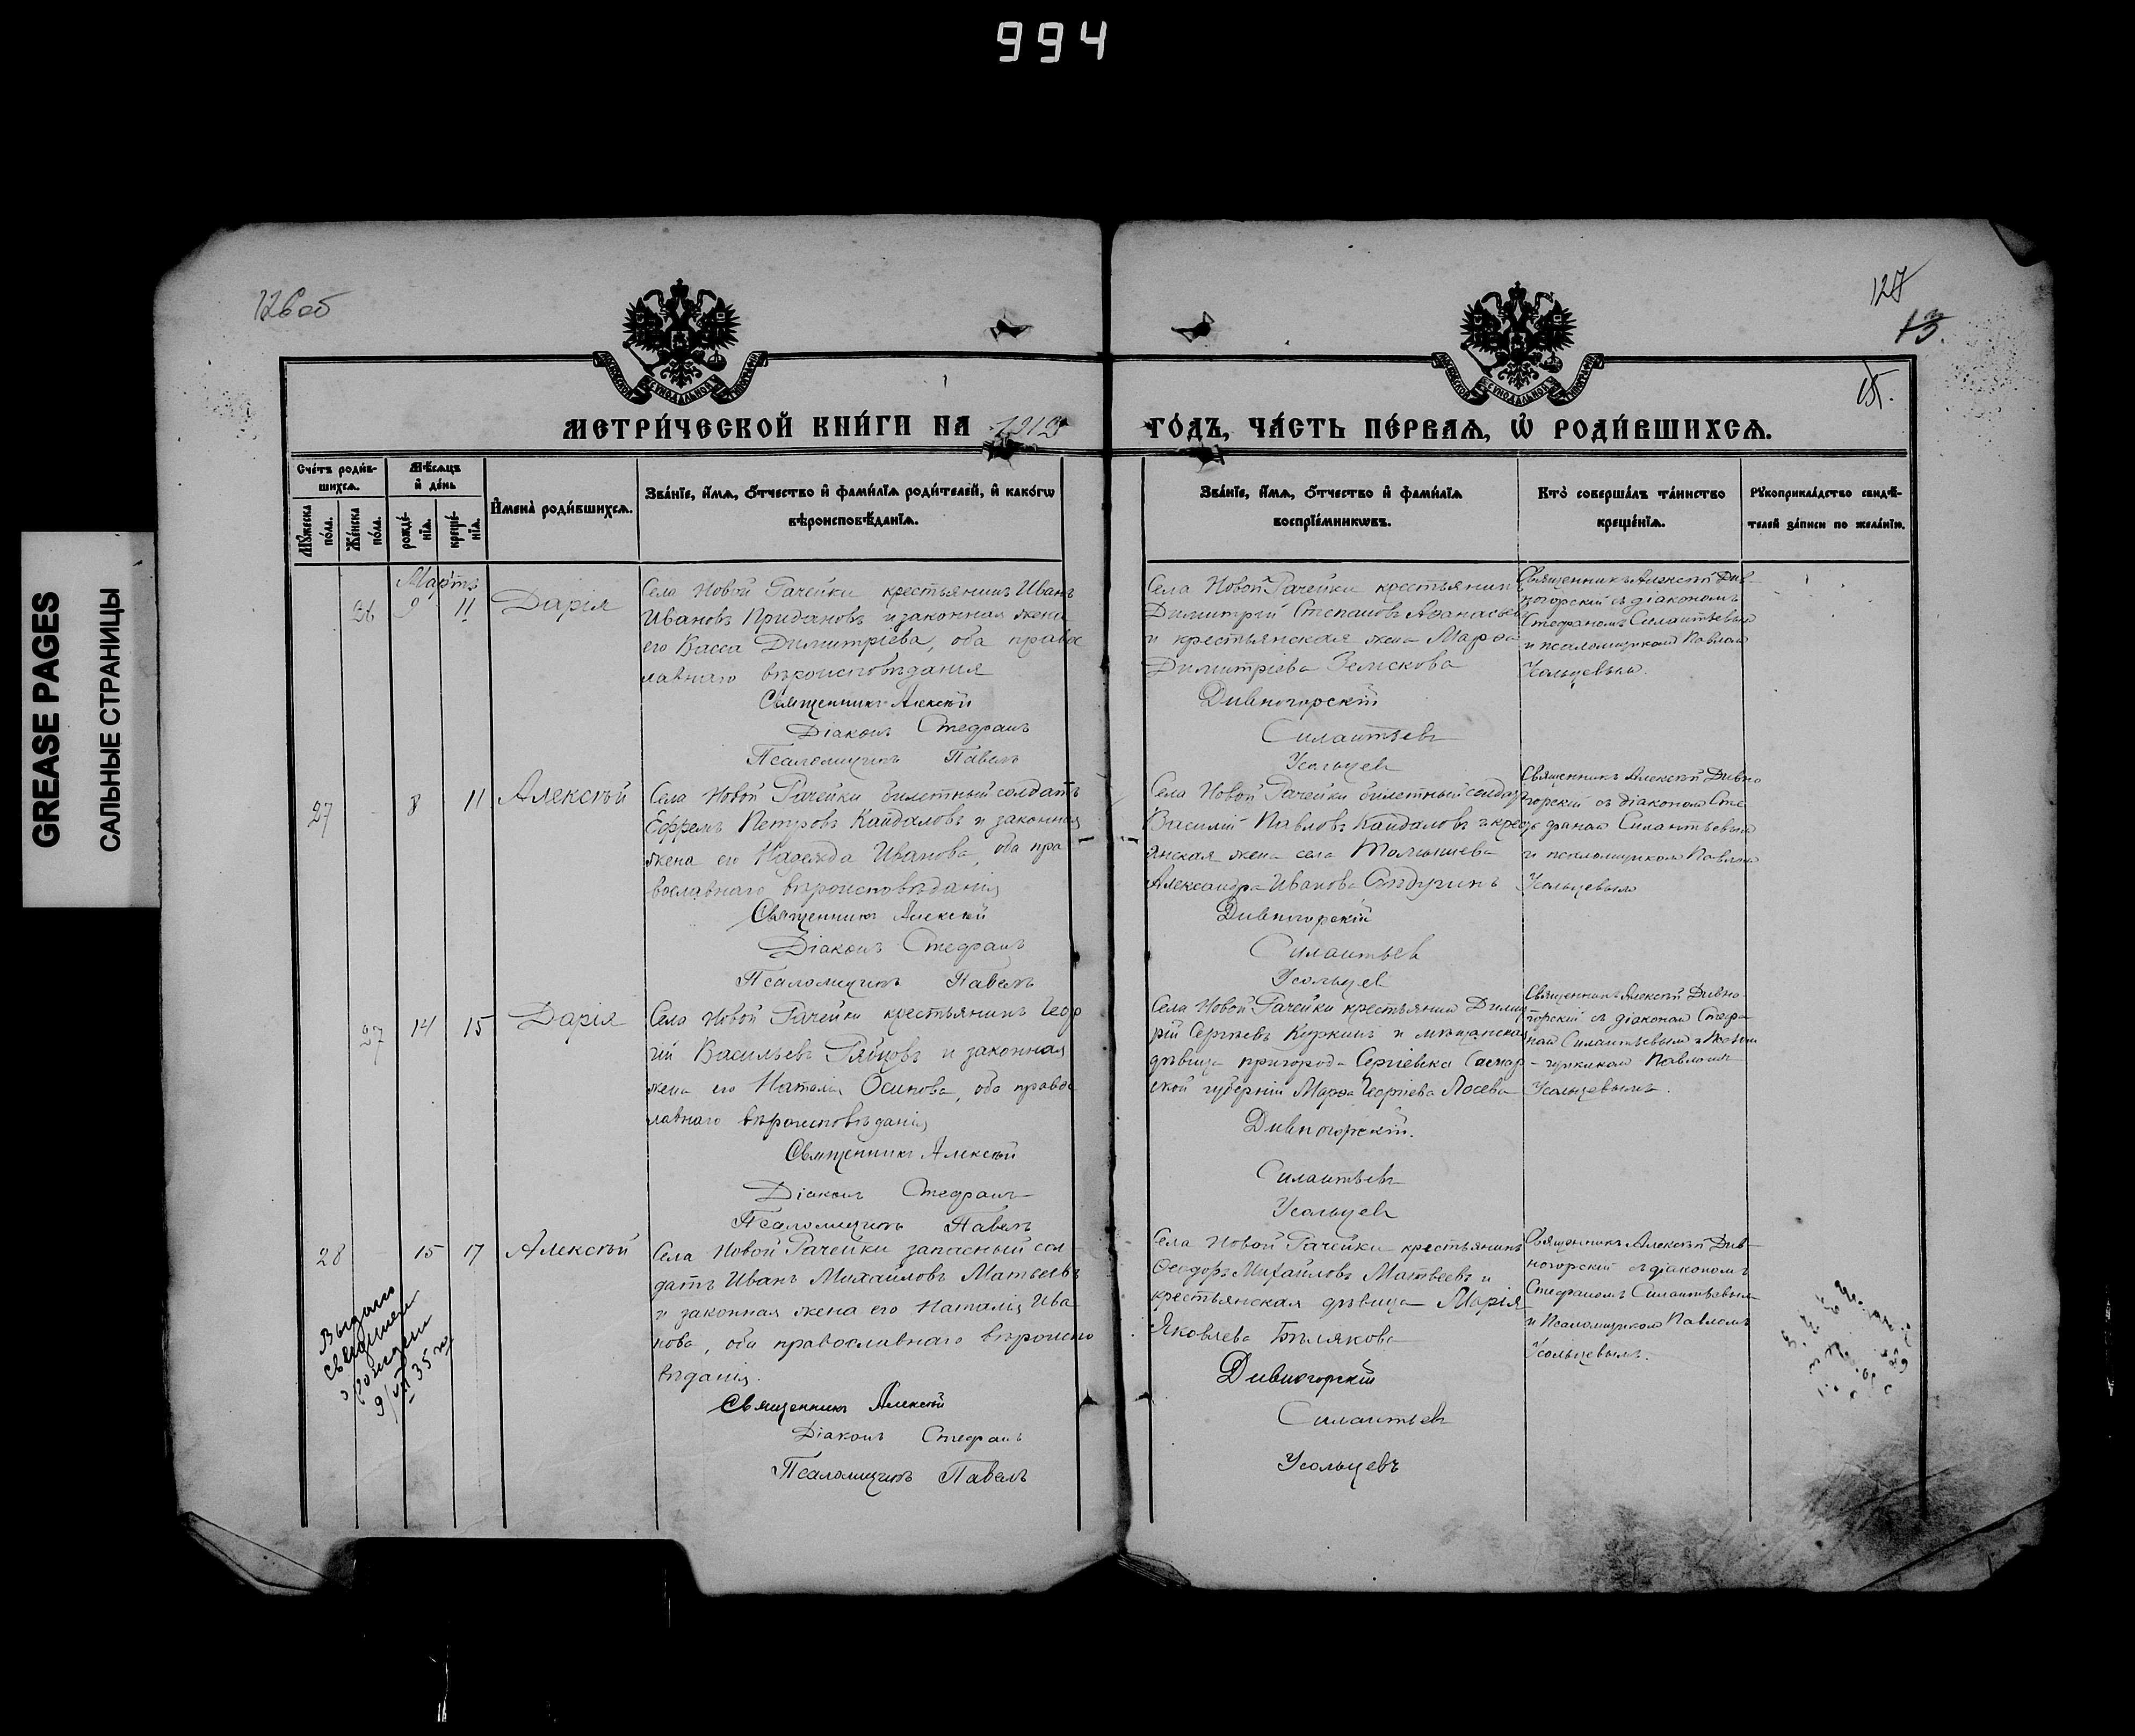 994
GREASE PAGES
САЛЬНЫЕ СТРАНИЦЫ
126об
127
13.
15.
МЕТРИ́ЧЕСКОЙ КНИ́ГИ НА 1912
ГО́ДЪ, ЧА́СТЬ ПЕ́РВАѦ, Ѡ҆ РОДИ́ВШИХСѦ.
Сче́тъ роди́в-
шихсѧ.
Мѣ́сѧцъ
и҆ де́нь
Мꙋ́жеска по́ла.
Же́нска по́ла.
рожде́-нїѧ.
креще́-нїѧ.
И҆мена̀ роди́вшихсѧ.
Зва́нїе, и҆́мѧ, ѻ҆́тчество и҆ фами́лїѧ роди́телей, и҆ како́гѡ
вѣроисповѣ́данїѧ.
Зва́нїе, и҆́мѧ, ѻ҆́тчество и҆ фами́лїѧ
воспрїе́мникѡвъ.
Кто̀ соверша́лъ та́инство
креще́нїѧ.
Рꙋкоприкла́дство свидѣ́-
телей за́писи по жела́нїю.
Мартъ
26 9 11 Дарія
Села Новой Рачейки крестьянинъ Иванъ
Ивановъ Придановъ и законная жена
его Васса Димитріева, оба правос
лавнаго вѣроисповѣданія
Священникъ Алексѣй
Діаконъ Стефанъ
Псаломщикъ Павелъ
Села Новой Рачейки крестьянинъ
Димитрій Степановъ Аѳанасьев
и крестьянская жена Марѳа
Димитріева Земскова
Дивногорскій
Силантьевъ
Усольцев
Священникъ Алексѣй Див-
ногорскій съ діакономъ
Стефаномъ Силантьевым
и псаломщиком Павлом
Усольцевым.
27 8 11 Алексѣй
Села Новой Рачейки билетный солдатъ
Ефремъ Петровъ Кайдаловъ и законная
жена его Надежда Иванова, оба пра
вославнаго вѣроисповѣданія
Священникъ Алексѣй
Діаконъ Стефанъ
Псаломщикъ Павелъ
Села Новой Рачейки билетный солдат
Василій Павловъ Кайдаловъ и крест
янская жена села Томышева
Александра Иванова
Дивногорскій
Силантьев
Усольцев
Священникъ Алексѣй Дивно
горскій съ діаконом Сте
фаном Силантьевым
и псаломщиком Павлом
Усольцевым
27 14 15 Дарія
Села Новой Рачейки крестьянинъ Геор
гій Васильевъ Рябцовъ и законная
жена его Наталія Осипова, оба правос
лавнаго вѣроисповѣданія
Священникъ Алексѣй
Діаконъ Стефанъ
Псаломщикъ Павелъ
Села Новой Рачейки крестьянин Димит
рій Сергѣевъ Куркинъ и мѣщанская
дѣвица пригорода Сергіевска Самар
ской губерніи Марѳа Георгіева Лосева
Дивногорскій.
Силантьевъ
Усольцев
Священникъ Алексѣй Дивно
горскій съ діаконом Стефа-
ном Силантьевым и псалом
-щиком Павломъ
Усольцевымъ.
28 15 17 Алексѣй
Села Новой Рачейки запасный сол-
датъ Иванъ Михайловъ Матвеевъ
и законная жена его Наталія Ива
нова, оба православнаго вѣроиспо
вѣданія.
Священникъ Алексѣй
Діаконъ Стефанъ
Псаломщикъ Павелъ
Села Новой Рачейки крестьянинъ
Ѳеодоръ Михайловъ Матвеевъ и
крестьянская дѣвица Марія
Яковлева Бѣлякова
Дивногорскій
Силантьев
Усольцевъ
Священникъ Алексѣй Див-
ногорскій съ діакономъ
Стефаномъ Силантьевым
и Псаломщиком Павломъ
Усольцевымъ.
Выдано
свидетел
о рожден
9/VII 35 г.